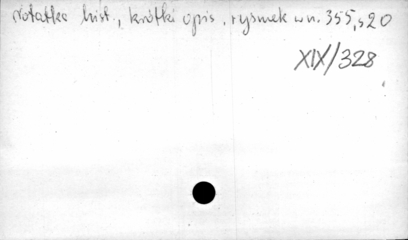 Notatka hist., krótki opis, rysunek w n. 355, s 20
XIX/328